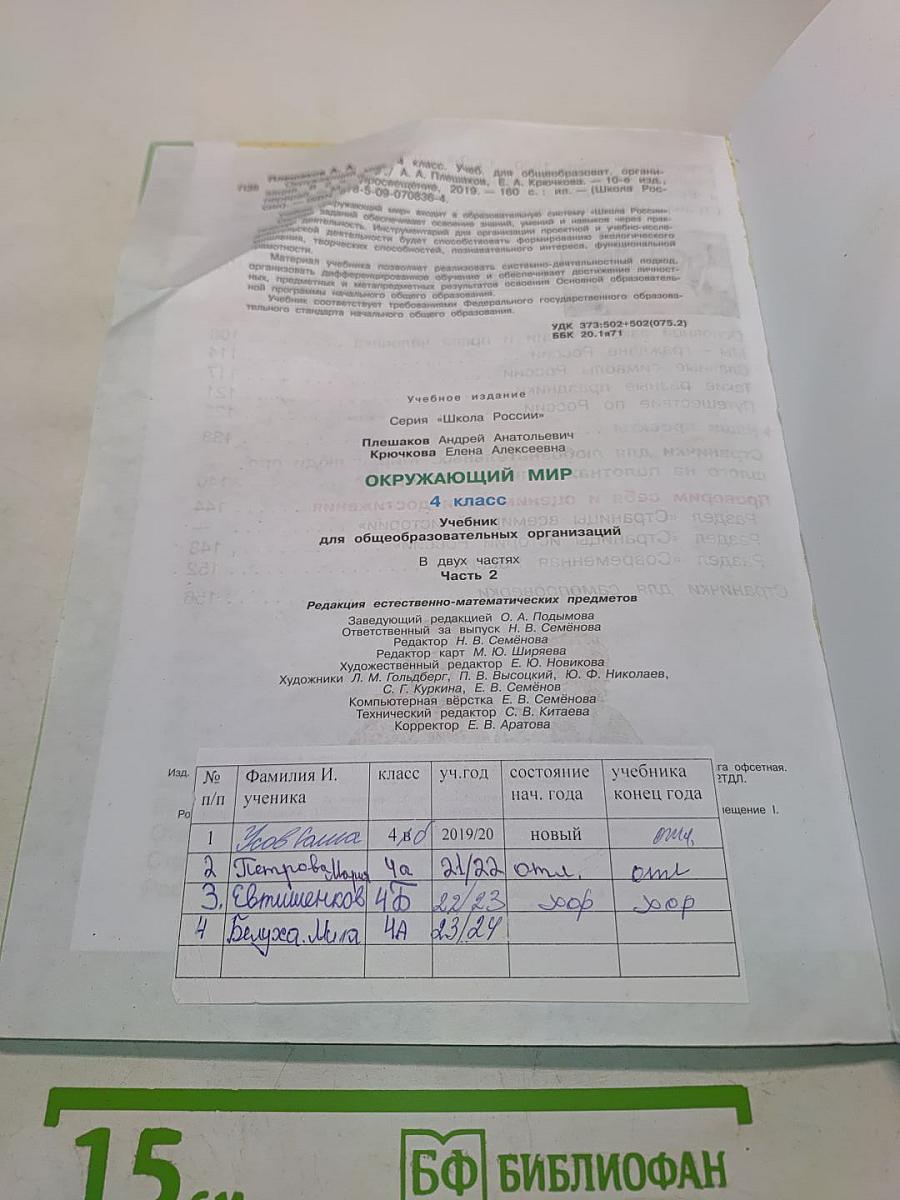 4 класс. Учеб. для общеобразоват. органи-
А. А. Плешаков, Е. А. Крючкова. — 10-е изд.,
Просвещение, 2019. — 160 с. : ил. — (Школа Рос-
978-5-09-070836-4.
мир» входит в образовательную систему «Школа России».
заданий обеспечивает освоение знаний, умений и навыков через прак-
деятельность. Инструментарий для организации проектной и учебно-иссле-
деятельности будет способствовать формированию экологического
творческих способностей, познавательного интереса, функциональной
грамотности.
Материал учебника позволяет реализовать системно-деятельностный подход,
организовать дифференцированное обучение и обеспечивает достижение личност-
ных, предметных и метапредметных результатов освоения Основной образователь-
ной программы начального общего образования.
Учебник соответствует требованиями Федерального государственного образова-
тельного стандарта начального общего образования.
УДК 373:502+502(075.2)
ББК 20.1я71
Учебное издание
Серия «Школа России»
Плешаков Андрей Анатольевич
Крючкова Елена Алексеевна
ОКРУЖАЮЩИЙ МИР
4 класс
Учебник
для общеобразовательных организаций
В двух частях
Часть 2
Редакция естественно-математических предметов
Заведующий редакцией О. А. Подымова
Ответственный за выпуск Н. В. Семёнова
Редактор Н. В. Семёнова
Редактор карт М. Ю. Ширяева
Художественный редактор Е. Ю. Новикова
Художники Л. М. Гольдберг, П. В. Высоцкий, Ю. Ф. Николаев,
С. Г. Куркина, Е. В. Семёнов
Компьютерная вёрстка Е. В. Семёнова
Технический редактор С. В. Китаева
Корректор Е. В. Аратова
Изд. га офсетная.
2ТДЛ.
Ро ещение I.
№ Фамилия И. класс уч.год состояние учебника
п/п ученика нач. года конец года
1 Усов Саша 4 б 2019/20 новый отл
2 Петрова Мария 4а 21/22 отл. отл
3. Евтишенков 4Б 22/23 хор хор
4 Белуха. Мила 4А 23/24
15 см
БФ БИБЛИОФАН